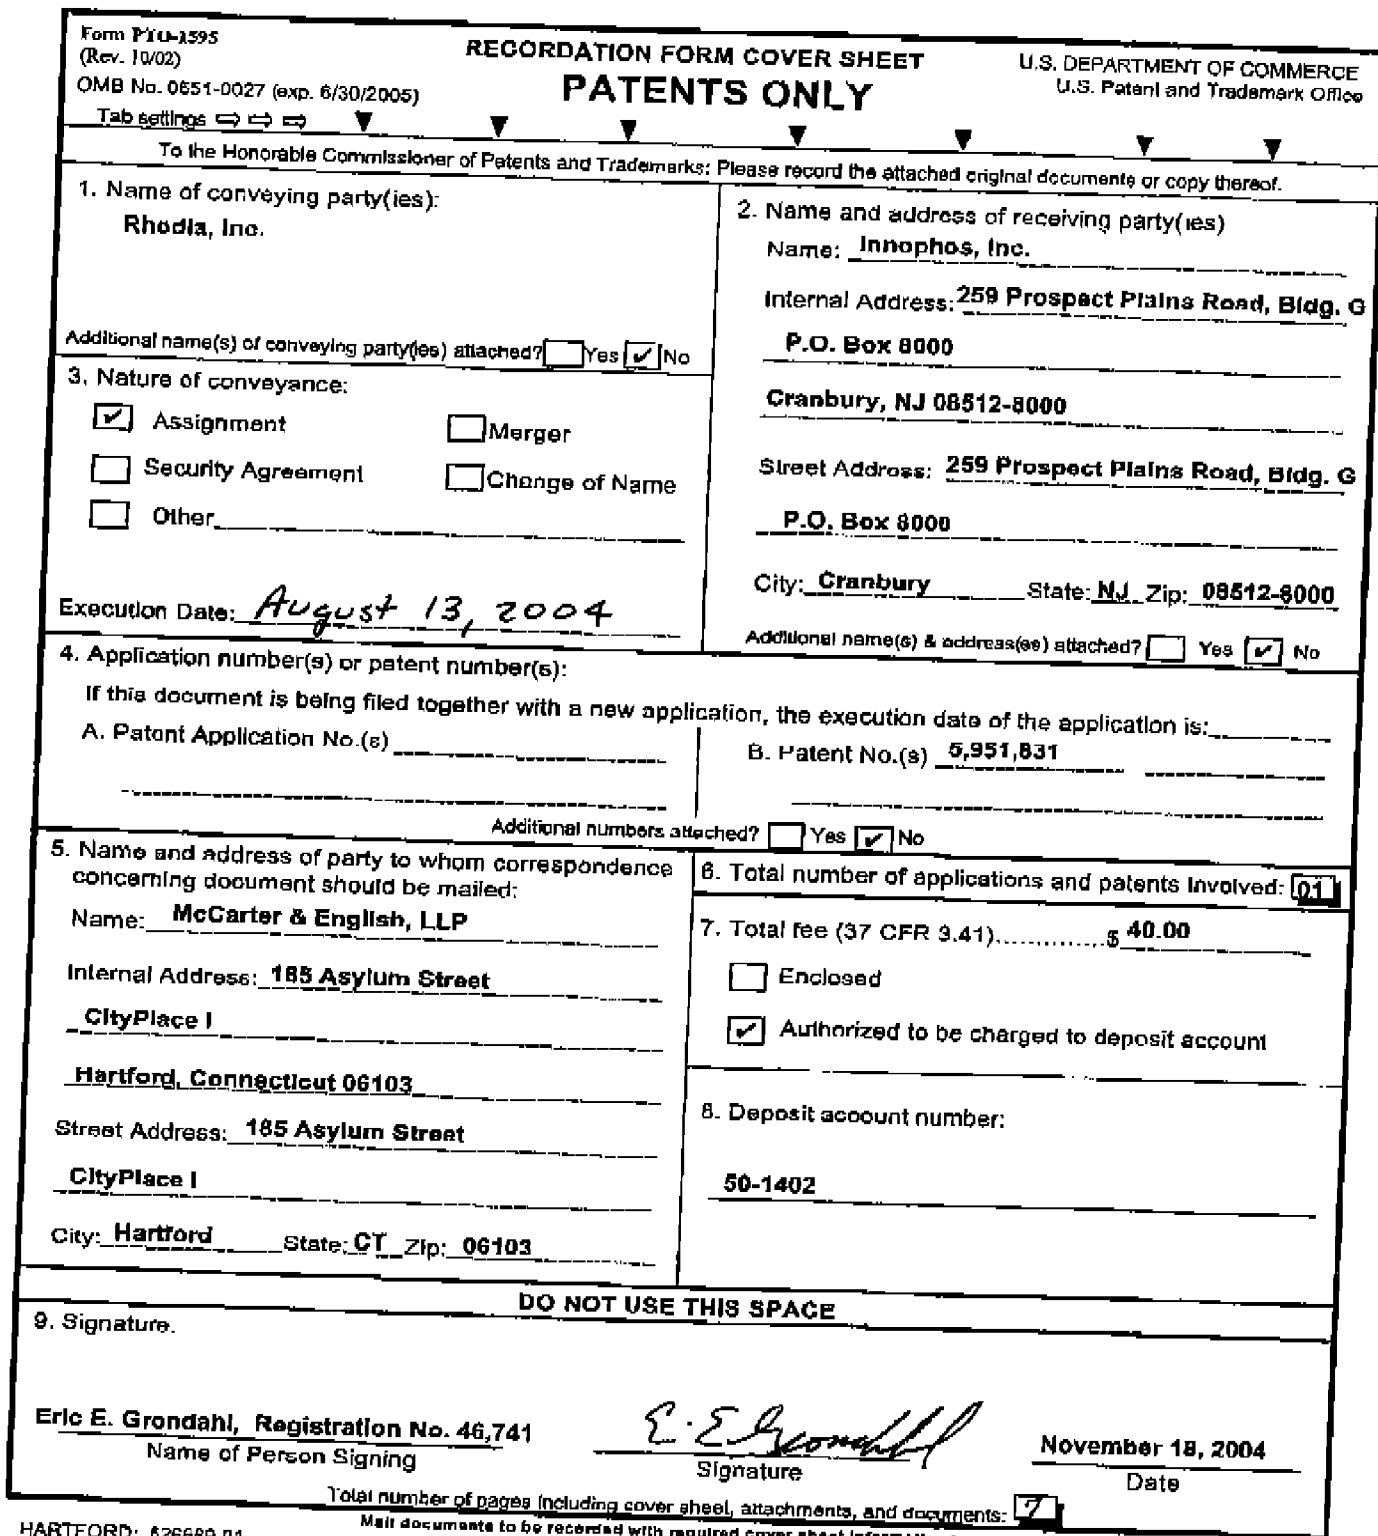 Form PTO-1595
(Rev. 10/02)
OMB No. 0651-0027 (exp. 6/30/2005)
Tab settings
RECORDATION FORM COVER SHEET
PATENTS ONLY
U.S. DEPARTMENT OF COMMERCE
U.S. Patent and Trademark Office
To the Honorable Commissioner of Patents and Trademarks: Please record the attached original documents or copy thereof.
1. Name of conveying party(ies):
Rhodia, Inc.
Additional name(s) of conveying party(ies) attached? Yes ✔ No
2. Name and address of receiving party(ies)
Name: Innophos, Inc.
Internal Address: 259 Prospect Plains Road, Bldg. G
P.O. Box 8000
Cranbury, NJ 08512-8000
Street Address: 259 Prospect Plains Road, Bldg. G
P.O. Box 8000
City: Cranbury State: NJ Zip: 08512-8000
Additional name(s) & address(es) attached? Yes ✔ No
3. Nature of conveyance:
✔ Assignment Merger
Security Agreement Change of Name
Other
Execution Date: August 13, 2004
4. Application number(s) or patent number(s):
If this document is being filed together with a new application, the execution date of the application is:
A. Patent Application No.(s)
B. Patent No.(s) 5,951,831
Additional numbers attached? Yes ✔ No
5. Name and address of party to whom correspondence
concerning document should be mailed:
Name: McCarter & English, LLP
Internal Address: 185 Asylum Street
CityPlace I
Hartford, Connecticut 06103
Street Address: 185 Asylum Street
CityPlace I
City: Hartford State: CT Zip: 06103
6. Total number of applications and patents involved: 01
7. Total fee (37 CFR 3.41).............$ 40.00
Enclosed
✔ Authorized to be charged to deposit account
8. Deposit account number:
50-1402
DO NOT USE THIS SPACE
9. Signature.
Eric E. Grondahl, Registration No. 46,741
Name of Person Signing
E. E Grondahl
Signature
November 18, 2004
Date
Total number of pages including cover sheet, attachments, and documents: 7
HARTFORD:
Mail documents to be recorded with required cover sheet